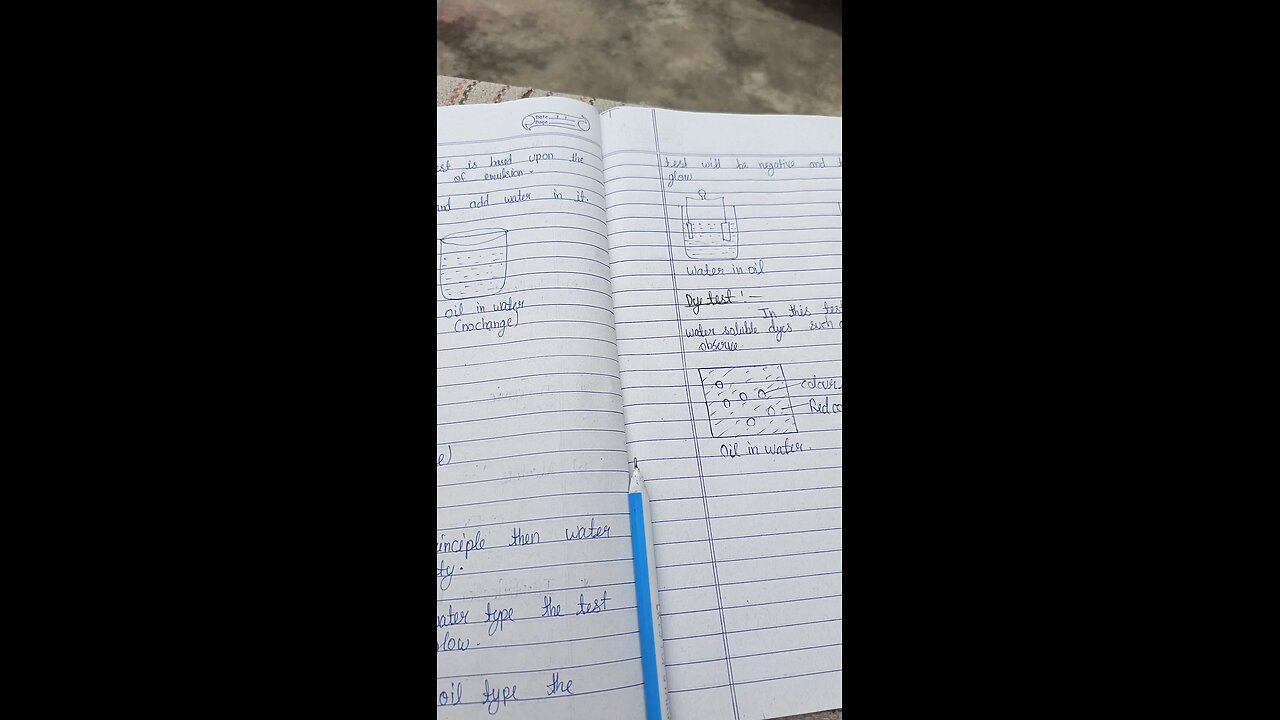 Date
Page
est is based upon the
of emulsion.
and add water in it.
oil in water
(nochange)
e)
inciple then water
ty.
water type the test
low.
oil type the
test will be negative and
glow
water in oil
Dye test :-
In this test
water soluble dyes such
observe
colour
Red co
Oil in water.